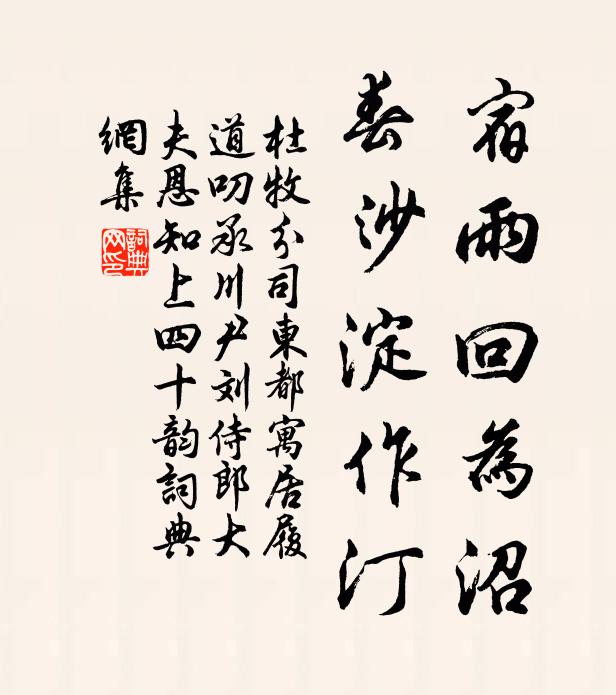 宿雨回為沼
春沙淀作汀
杜牧分司東都寓居履
道叨承川尹刘侍郎大
夫恩知上四十韵詞典
網集
詞典網印